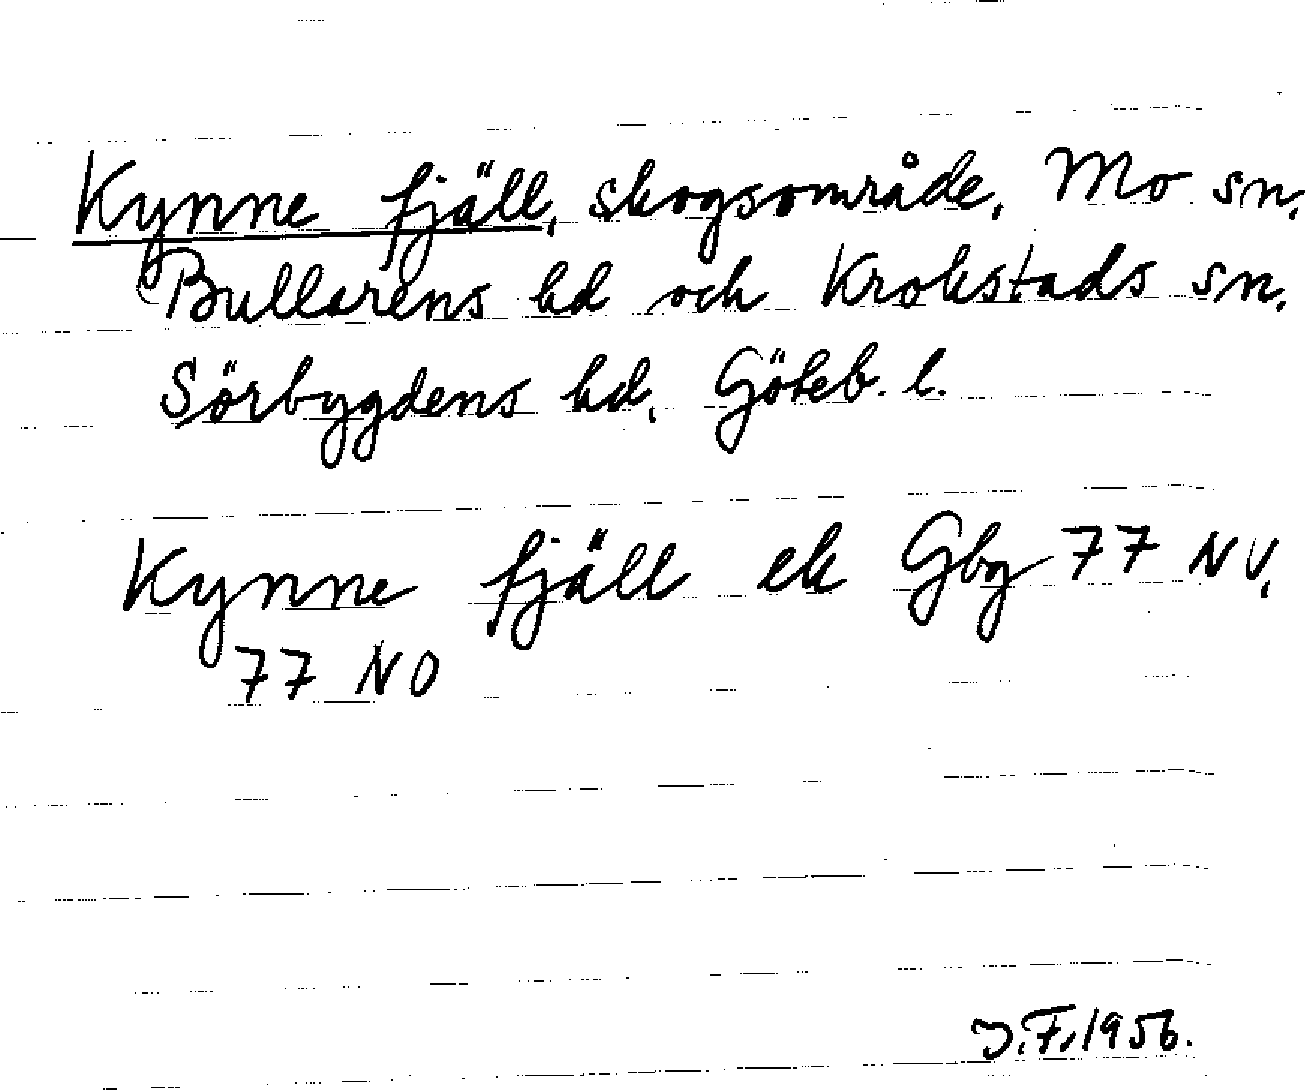 Kynne fjäll, skogsområde, Mo sn,
Bullarens hd och Krokstads sn,
Sörbygdens hd, Göteb. l.
Kynne fjäll ek Gbg 77 NV,
77 NO
J.F. 1956.